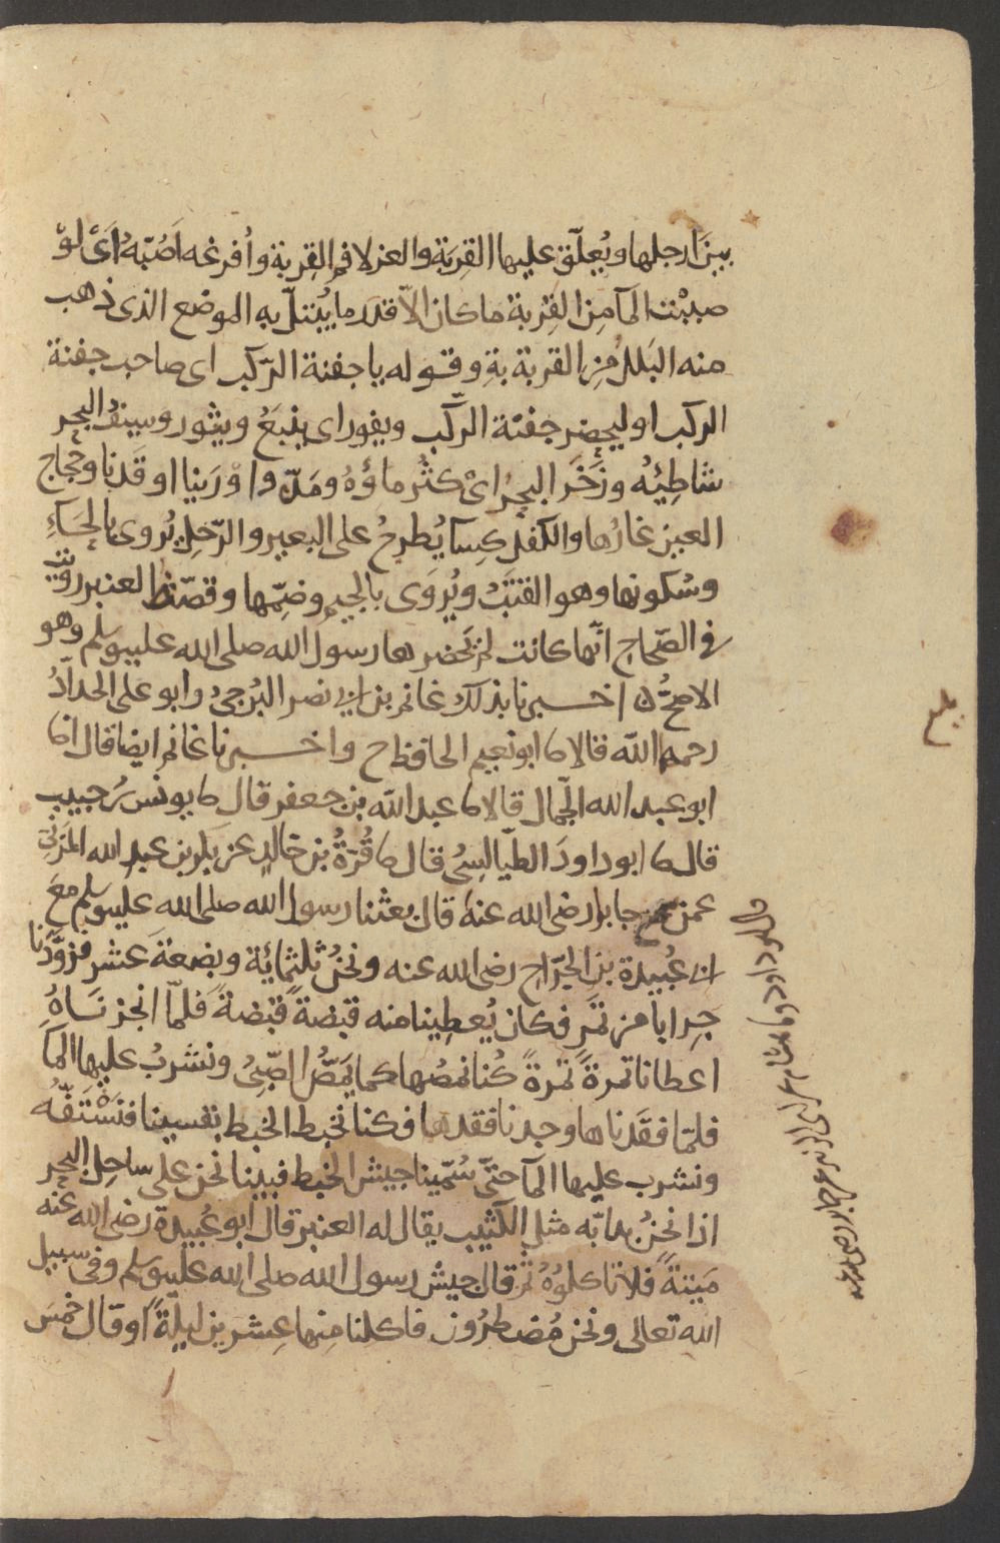 بين ارجلها ويُعلّق عليها القِربَة والعزلا فم القِربة وأفرغه اَصُبّهُ اَىْ لَوْ
صببْت المآ مِن القِرْبة ما كان الاّ قدر ما يُبتلّ به الموضع الذى ذهب
منه البَلل مِن القربة بةِ وقوله يا جفنة الرّكب اى صاحب جفنة
الركب او ليحضر جفنة الركَّب ويفور اى ينبَعُ ويثور وسيفُ البحر
شاطِئُه وزَخَر البحرُ اىْ كثُر ماؤهُ ومَدّ واوْرَينا اوقَدنا وحجاج
العين غارُها والكفل كِسا يُطرحُ على البعير والرّحل يُروى بالحآءِ
وسُكونها وهو القتبُ ويُروَى بالجيم وضمِّها وقصّة العنبر رويت
فى الصّحاح انّها كانت لم يَحضرها رسول الله صلى الله عليه وسلم وهو
الاصحُّ ۞ اخبرنا بذلك غانم بن ابى نصر البُرجىُ وابو على الحدّادُ
رحمهما الله قالا ابا ابو نعيم الحافظ ح واخبرنا غانم ايضا قال انا
ابو عبد الله الجمّال قالا ثنا عبد الله بن جعفر قال ثنا يونس بن حبيب
قال ثنا ابو داودَ الطّيالسِىُ قال ثنا قُرّةُ بن خالدٍ عن بكر بن عبد الله المزنىّ
عن جابر رضى الله عنهُ قال بعثنا رسول الله صلى الله عليه وسلم معَ
ابى عُبيدة بن الجَرّاح رضى الله عنه ونحنُ ثلثمائة وبضعةَ عشر فزوَّدنا
جِرابا من تَمْر فكان يُعطِينا منه قبْضةً قبْضةً فلمّا انجزنَاهُ
اعطانا تمرةً تمرةً كُنا نمصُها كما يَمَصُّ الصّبىُ ونشربُ عليها المآ
فلمّا فقَدناها وجدنا فقدها فكنا نخبط الخبط بقسينا فنَسْتَفُّه
ونشرب عليها المآ حتّى سُمّينا جيش الخبط فبينا نحن على ساحِل البحر
اذا نحنُ بدابّه مثل الكثيب يقال له العنبر قال ابو عُبيدة رضى الله عنه
مَيتةً فلا تاكلوُهُ ثم قال جيش رسول الله صلى الله عليه وسلم وفى سبيل
الله تعالى ونحن مُضطرُون فاكلنا مِنها عِشرين ليلّةً او قال خمسَ
قال ابو داود وثنا هشام عن ابى الزبير عن جابر رضى الله عنه